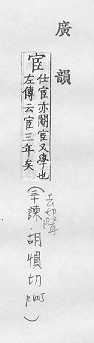 廣韻
宦
仕宦亦閹宦又學也
左傳云宦三年矣
諫 胡慣切